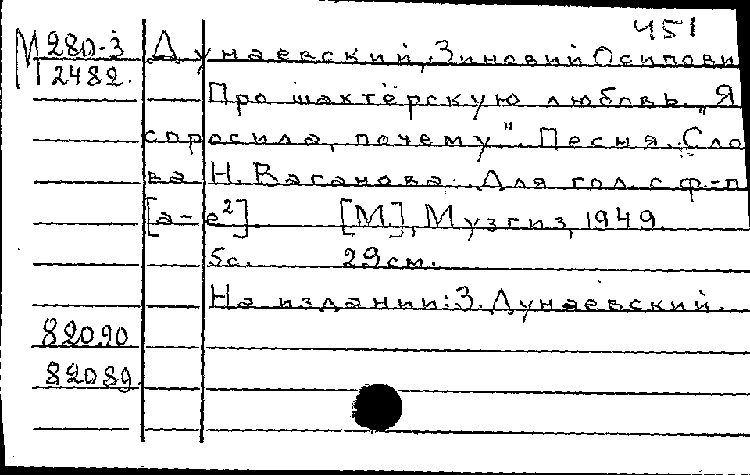 451
М 280-3 Дунаевский, Зиновий Осипови
2482.
Про шахтёрскую любовь. „Я
спросила, почему". Песня. Сло
ва Н. Васанова. Для гол. с ф-п
[а-е²]. [М.], Музгиз, 1949.
5с. 29см.
На издании: З. Дунаевский.
82090
82089